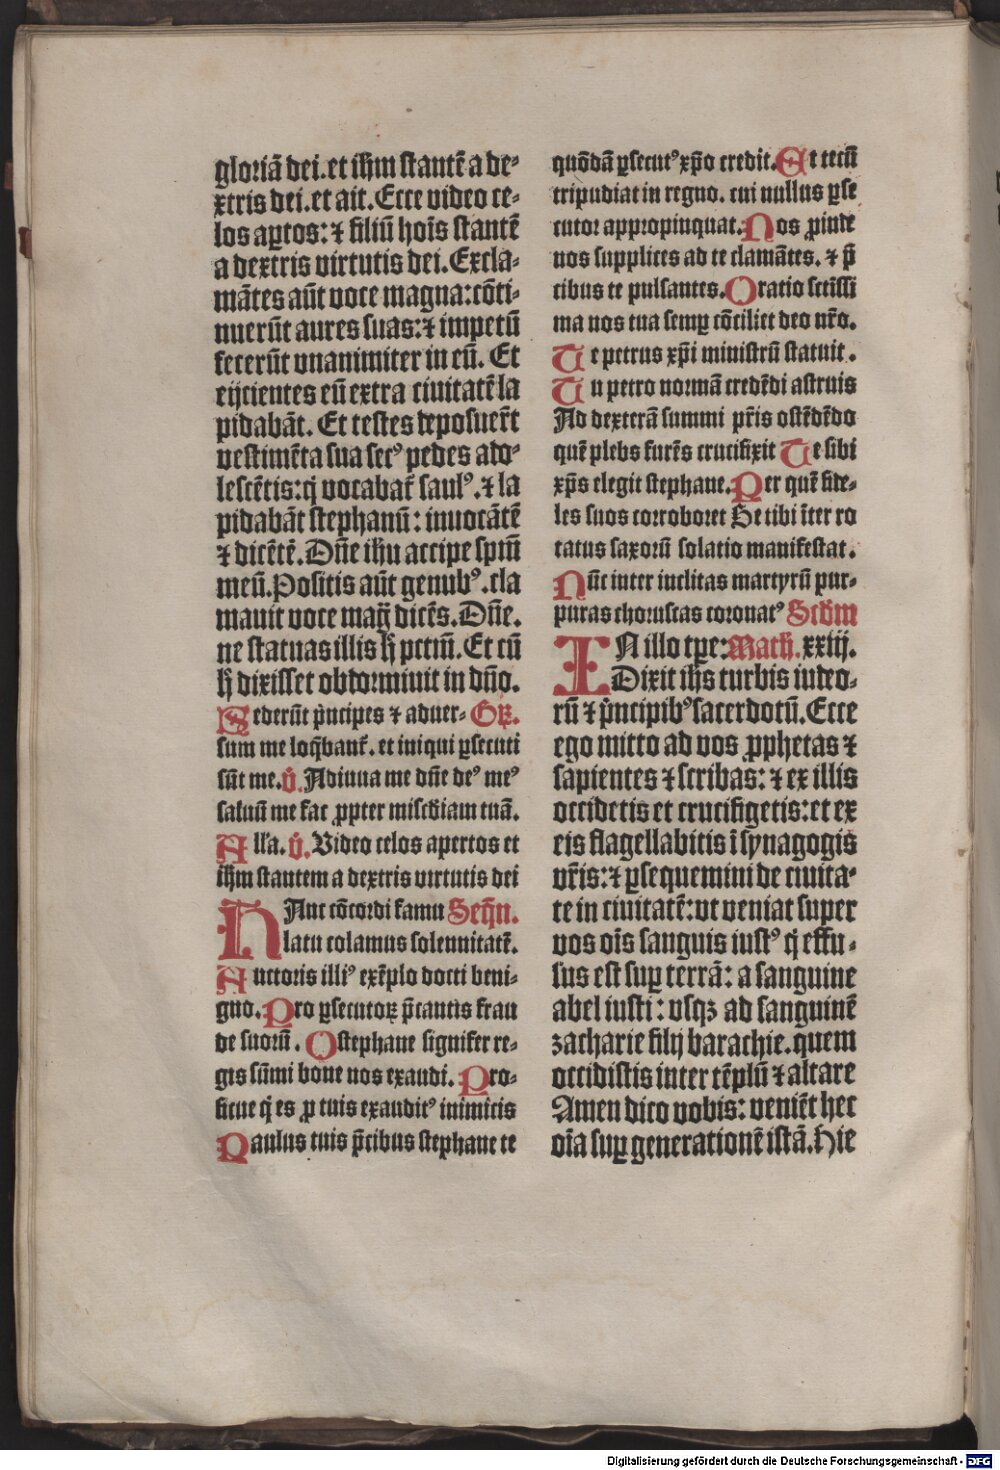 gloriā dei. et ihm̄ stantē a de⸗
xtris dei. et ait. Ecce video ce⸗
los aꝑtos: ⁊ filiū hoīs stantē
a dextris virtutis dei. Excla⸗
mātes aūt voce magna: cōti⸗
nuerūt aures suas: ⁊ impetū
fecerūt vnanimiter in eū. Et
eijcientes eū extra ciuitatē la
pidabāt. Et testes deposuer̄t
vestimēta sua secꝰ pedes ado⸗
lescētis: q̄ vocabat̄ saulꝰ. ⁊ la
pidabāt stephanū: inuocātē
⁊ dicētē. Dn̄e ihu accipe spm̄
meū. Positis aūt genubꝰ. cla
mauit voce maḡ dicēs. Dn̄e.
ne statuas illis h̄ pctm̄. Et cū
h̄ dixisset obdormiuit in dn̄o.
Sederūt p̄ncipes ⁊ aduer⸗ Gꝝ.
sum me loq̄bant̄. et iniqui ꝑsecuti
sūt me. v̄. Adiuua me dn̄e deꝰ meꝰ
saluū me fac ꝓpter misc̄diam tuā.
All'a. v̄. Video celos apertos et
ihm̄ stantem a dextris virtutis dei
HAnc cōcordi famu Seqn̄.
latu colamus solennitatē.
Auctoris illiꝰ exēplo docti beni⸗
gno. Pro ꝑsecutoꝝ p̄cantis frau
de suorū. O stephane signifer re⸗
gis sūmi bone nos exaudi. Pro⸗
ficue q̄ es ꝓ tuis exauditꝰ inimicis
Paulus tuis p̄cibus stephane te
quōdā ꝑsecutꝰ xp̄o credit. Et tecū
tripudiat in regno. cui nullus ꝑse
cutor appropinquat. Nos ꝓinde
nos supplices ad te clamātes. ⁊ p̄
cibus te pulsantes. Oratio sctissi
ma nos tua semꝑ cōciliet deo nr̄o.
Te petrus xp̄i ministrū statuit.
Tu petro normā credēdi astruis
Ad dexterā summi pr̄is ostēdēdo
quē plebs furēs crucifixit Te sibi
xp̄s elegit stephane. Per quē fide⸗
les suos corroboret Se tibi īter ro
tatus saxorū solatio manifestat.
Nūc inter inclitas martyrū pur⸗
puras choruscas coronatꝰ Scd̄m
IN illo tꝑe: Math. xxiij.
Dixit ihs turbis iudeo⸗
rū ⁊ p̄ncipibꝰ sacerdotū. Ecce
ego mitto ad vos ꝓphetas ⁊
sapientes ⁊ scribas: ⁊ ex illis
occidetis et crucifigetis: et ex
eis flagellabitis ī synagogis
vr̄is: ⁊ ꝑsequemini de ciuita⸗
te in ciuitatē: vt veniat super
vos oīs sanguis iustꝰ q̄ effu⸗
sus est suꝑ terrā: a sanguine
abel iusti: vsqꝫ ad sanguinē
zacharie filij barachie. quem
occidistis inter tēplū ⁊ altare
Amen dico vobis: veniēt hec
oīa suꝑ generationē istā. Hie
Digitalisierung gefördert durch die Deutsche Forschungsgemeinschaft - DFG